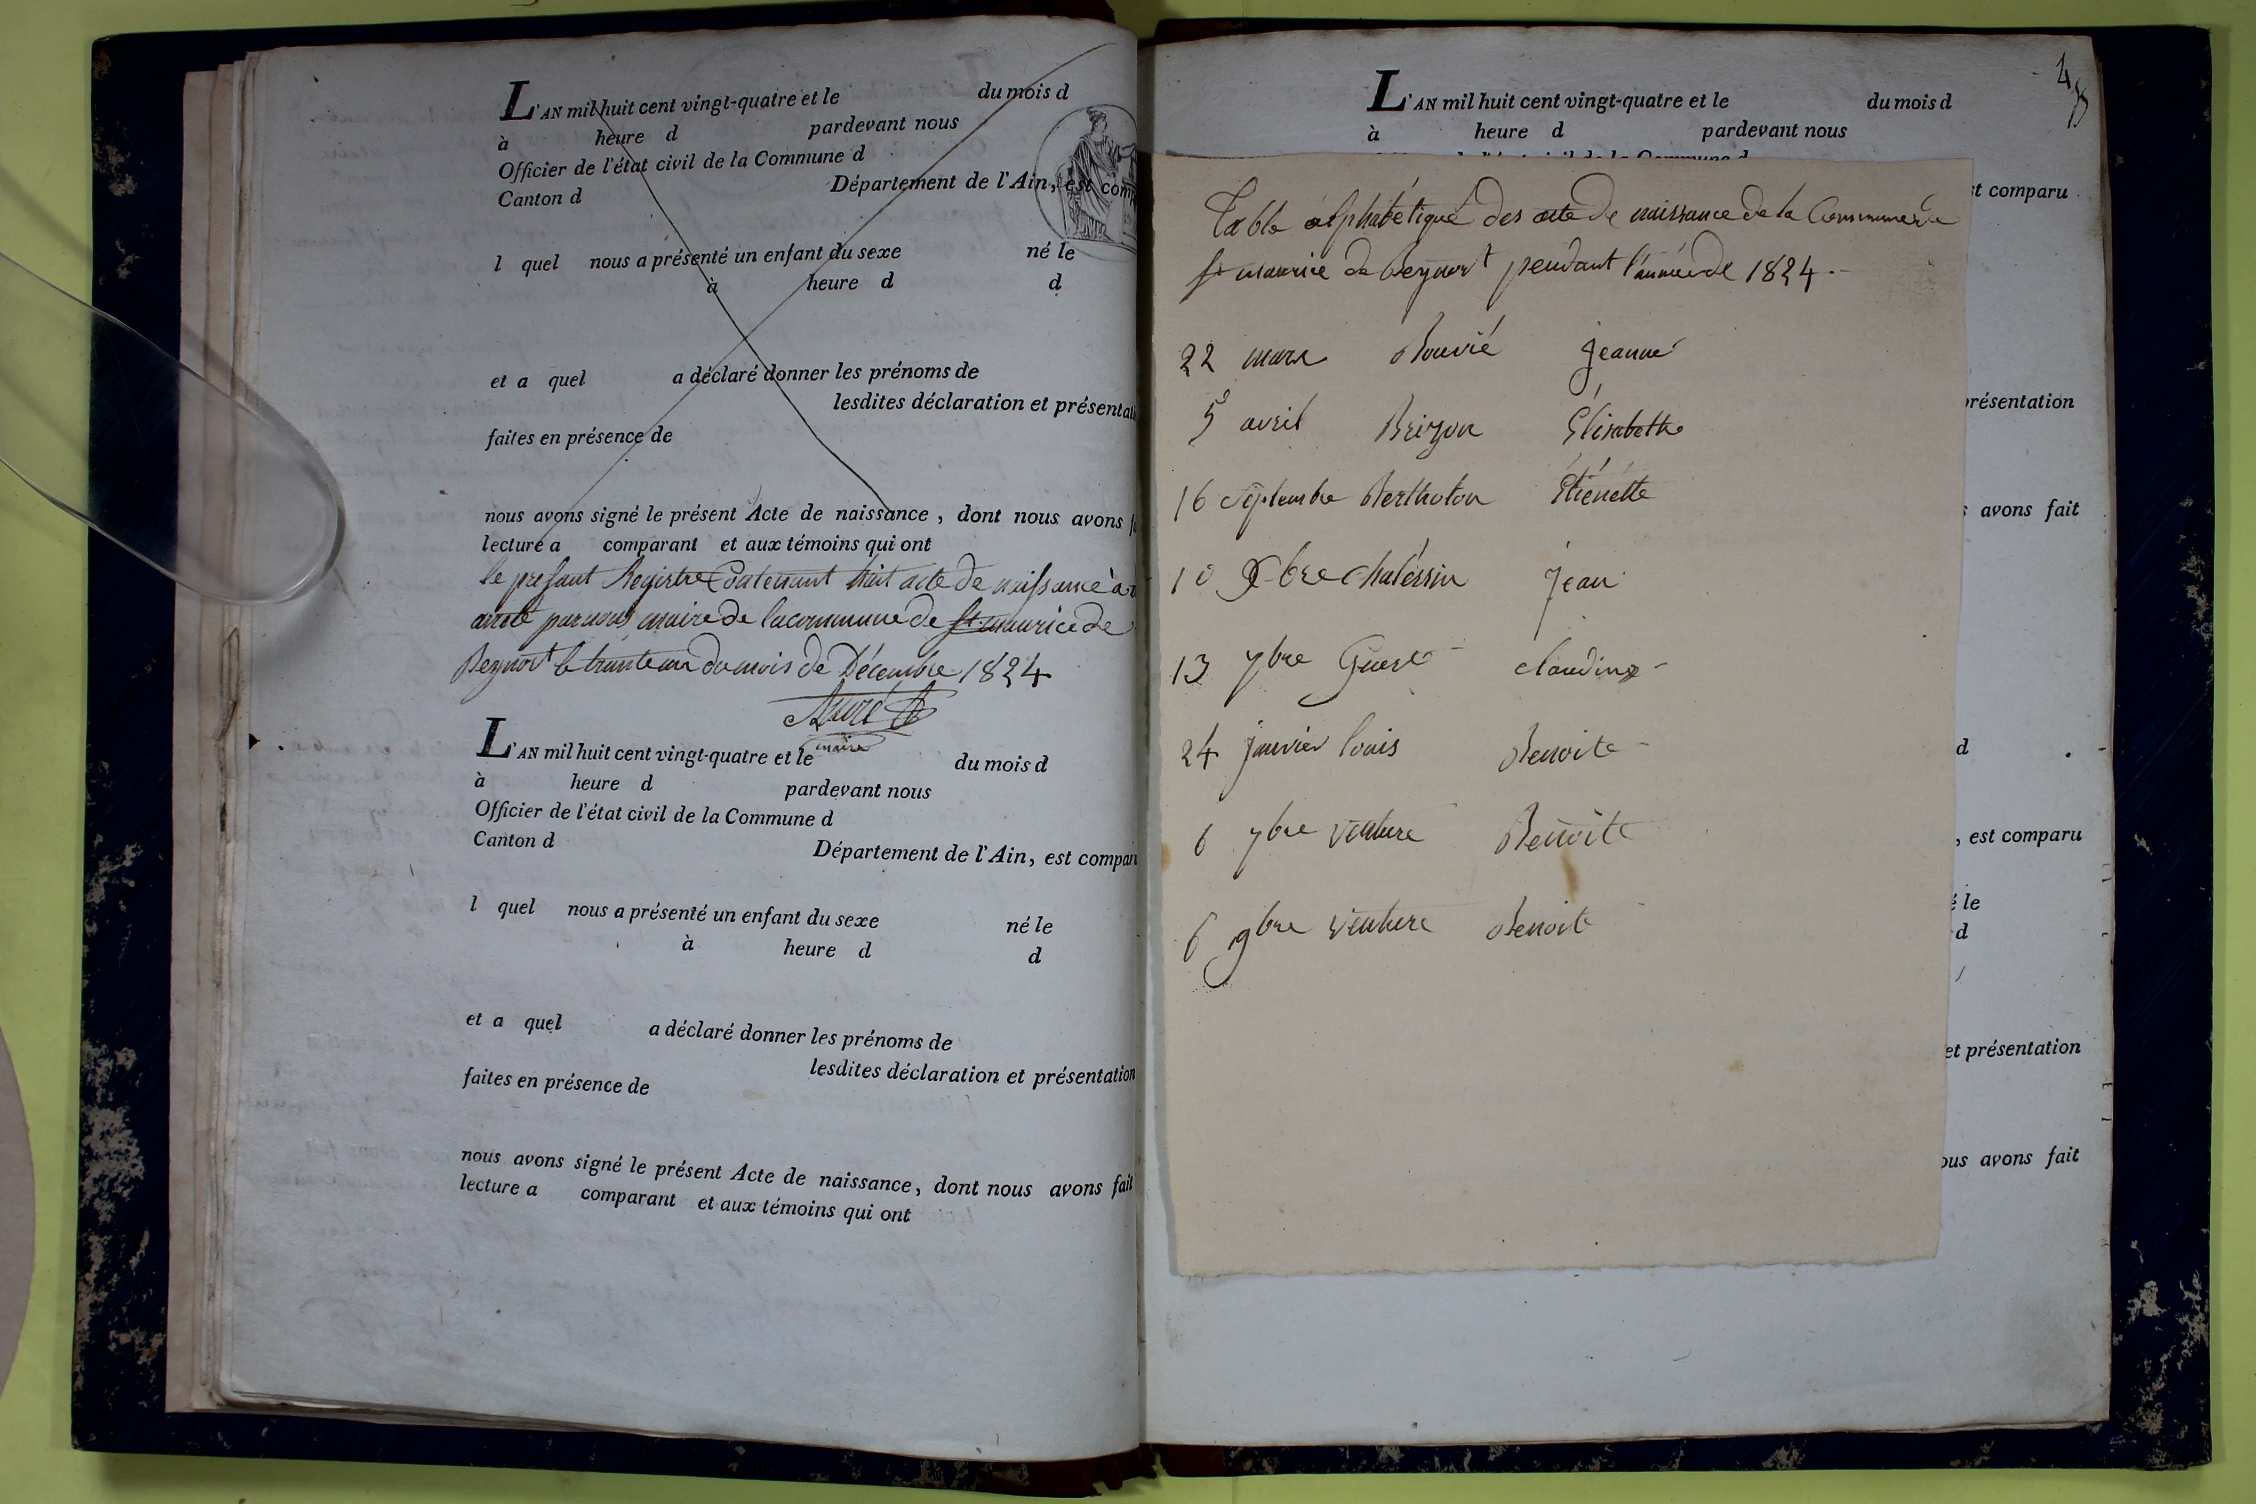 L'AN mil huit cent vingt-quatre et le du mois d
à heure d pardevant nous
Officier de l'état civil de la Commune d
Canton d Département de l'Ain, est comp
l quel nous a présenté un enfant du sexe né le
à heure d d
et a quel a déclaré donner les prénoms de
lesdites déclaration et présentati
faites en présence de
nous avons signé le présent Acte de naissance, dont nous avons f
lecture a comparant et aux témoins qui ont
le presant Registre Contenant huit acte de naissance à
arreté par nous maire de la commune de St. maurice de
Beynost le trente un du mois de Décembre 1824
maire
L'AN mil huit cent vingt-quatre et le du mois d
à heure d pardevant nous
Officier de l'état civil de la Commune d
Canton d Département de l'Ain, est compar
l quel nous a présenté un enfant du sexe né le
à heure d d
et a quel a déclaré donner les prénoms de
lesdites déclaration et présentation
faites en présence de
nous avons signé le présent Acte de naissance, dont nous avons fait
lecture a comparant et aux témoins qui ont
4
L'AN mil huit cent vingt-quatre et le du mois d
à heure d pardevant nous
st comparu
Table alphabétique des acte de naissance de la Commune de
St maurice de Beynost pendant l'année de 1824.
22 mars Bouvié Jeanne
5 avril Brizon Élisabeth
16 Septembre Bertholon Étiénette
10 Xbre chaléssin Jean
13 7bre Guest claudine
24 janvier louis Benoite
6 7bre venture Benoite
6 9bre venture Benoite
présentation
avons fait
d
, est comparu
é le
d
et présentation
ous avons fait